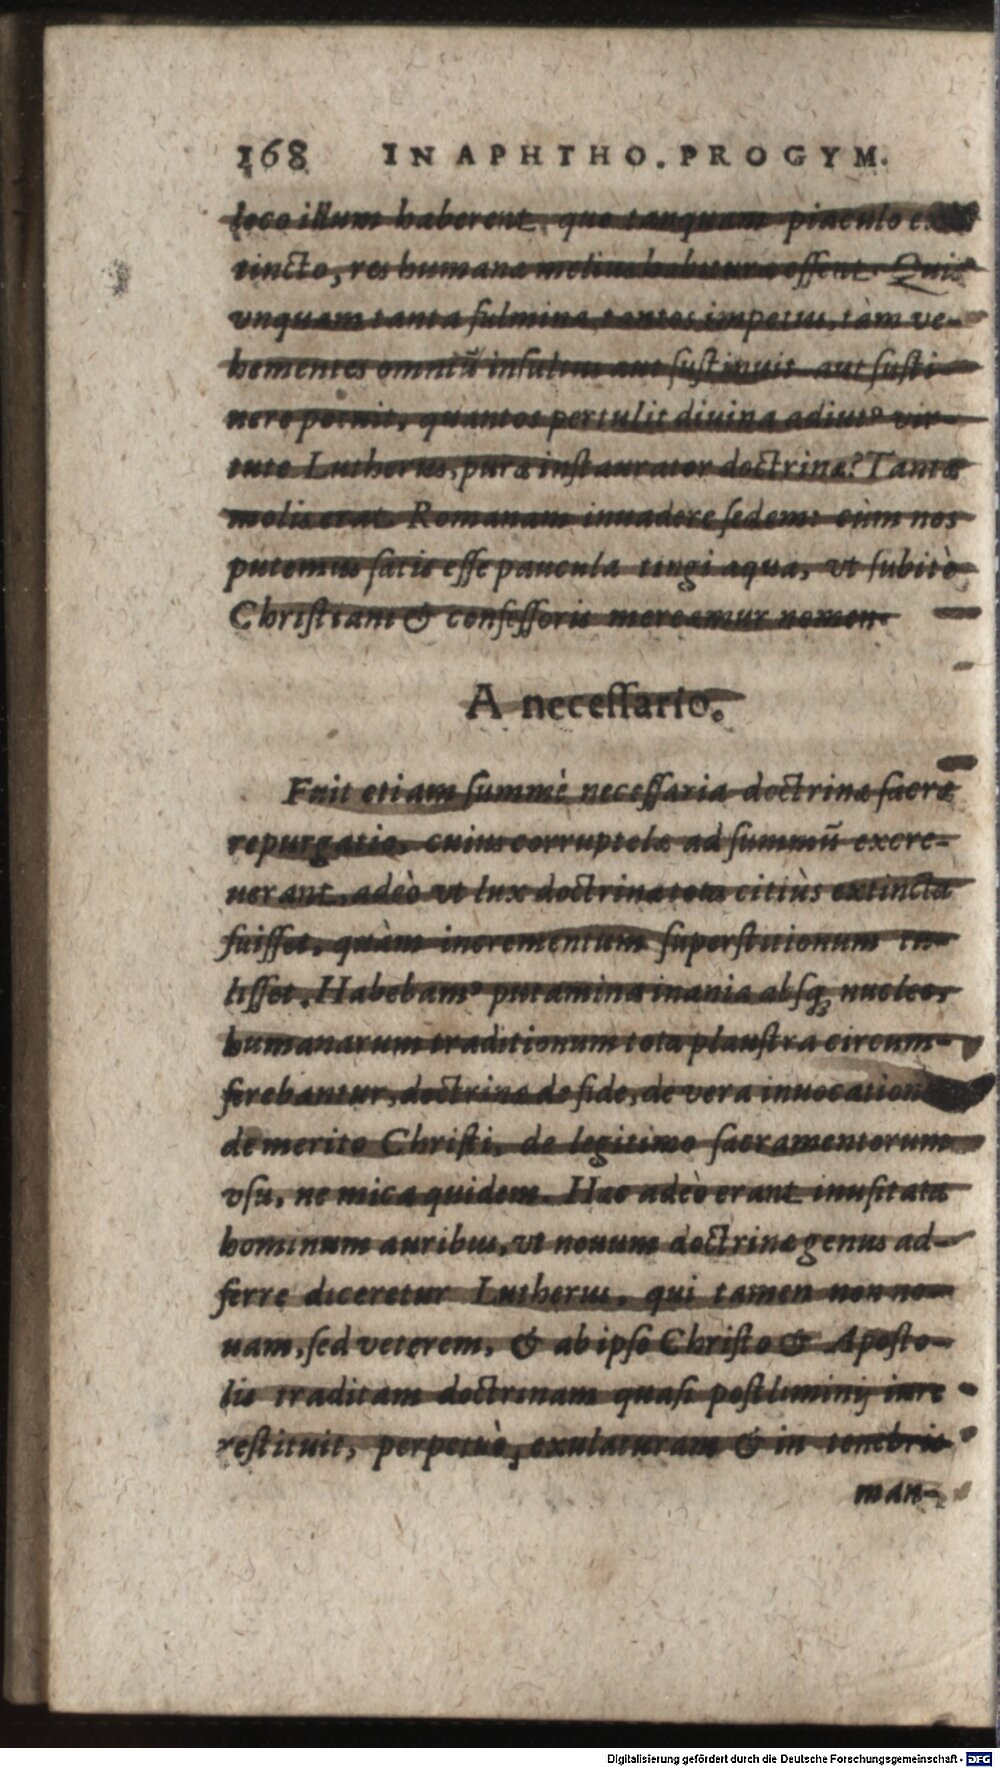 168 IN APHTHO. PROGYM.
loco illum haberent, quo tanquam piaculo ex
tincto, res humanæ melius habituræ essent. Quis
vnquam tanta fulmina, tantos impetus, tàm ve-
hementes omniũ insultus aut sustinuit aut susti
nere potuit, quantos pertulit diuina adiutꝰ vir-
tute Lutherus, puræ instaurator doctrinæ? Tantæ
molis erat Romanam inuadere sedem: cùm nos
putemus satis esse paucula tingi aqua, vt subitò
Christiani & confessoris mereamur nomen.
A necessario.
Fuit etiam summè necessaria doctrinæ sacræ
repurgatio, cuius corruptelæ ad summũ excre-
uerant, adeò vt lux doctrinæ tota citiùs extincta
fuisset, quàm incrementum superstitionum tu-
lisset. Habebamꝰ putamina inania absq; nucleo,
humanarum traditionum tota plaustra circum-
ferebantur, doctrina de fide, de vera inuocatione
de merito Christi, de legitimo sacramentorum
vsu, ne mica quidem. Hæc adeò erant inusitata
hominum auribus, vt nouum doctrinæ genus ad-
ferre diceretur Lutherus, qui tamen non no-
uam, sed veterem, & ab ipso Christo & Aposto-
lis traditam doctrinam quasi postliminij iure
restituit, perpetuò, exulaturam & in tenebris
man-
Digitalisierung gefördert durch die Deutsche Forschungsgemeinschaft - DFG